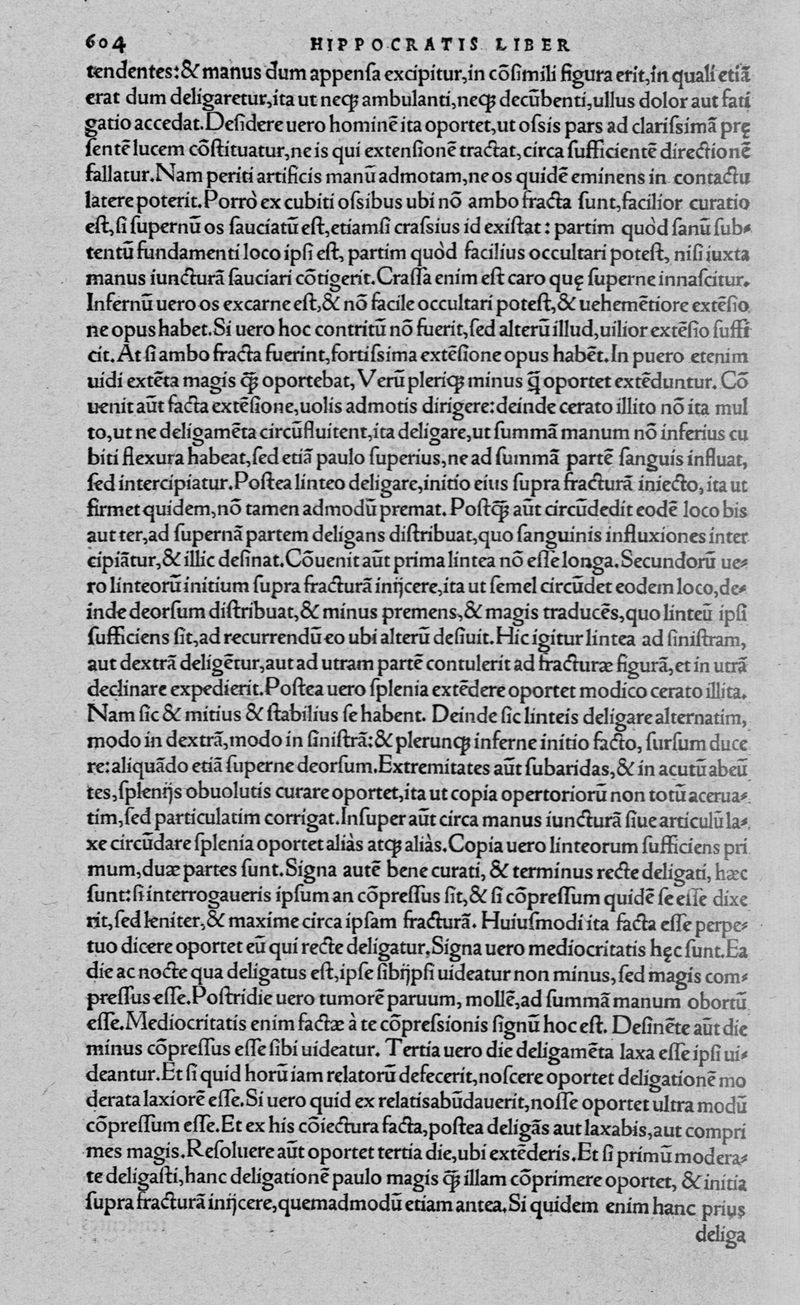 604 HIPPOCRATIS LIBER
tendentes:& manus dum appenſa excipitur,in cõſimili figura erit,in quali etiã
erat dum deligaretur,ita ut neq; ambulanti,neq; decũbenti,ullus dolor aut fati
gatio accedat.Deſidere uero hominẽ ita oportet,ut oſsis pars ad clariſsimã prę
ſentẽ lucem cõſtituatur,ne is qui extenſionẽ tractat,circa ſufficientẽ directionẽ
fallatur.Nam periti artificis manũ admotam,ne os quidẽ eminens in contactu
latere poterit.Porrò ex cubiti oſsibus ubi nõ ambo fracta ſunt,facilior curatio
eſt,ſi ſupernũ os ſauciatũ eſt,etiamſi craſsius id exiſtat: partim quòd ſanũ ſub⸗
tentũ fundamenti loco ipſi eſt, partim quòd facilius occultari poteſt, niſi iuxta
manus iuncturã ſauciari cõtigerit.Craſſa enim eſt caro quę ſuperne innaſcitur.
Infernũ uero os excarne eſt,& nõ facile occultari poteſt,& uehemẽtiore extẽſio
ne opus habet.Si uero hoc contritũ nõ fuerit,ſed alterũ illud,uilior extẽſio ſuffi
cit.At ſi ambo fracta fuerint,fortiſsima extẽſione opus habẽt.In puero etenim
uidi extẽta magis q̃; oportebat, Verũ pleriq; minus q̃ oportet extẽduntur. Cõ
uenit aũt facta extẽſione,uolis admotis dirigere:deinde cerato illito nõ ita mul
to,ut ne deligamẽta circũfluitent,ita deligare,ut ſummã manum nõ inferius cu
biti flexura habeat,ſed etiã paulo ſuperius,ne ad ſummã partẽ ſanguis influat,
ſed intercipiatur.Poſtea linteo deligare,initio eius ſupra fracturã iniecto,ita ut
firmet quidem,nõ tamen admodũ premat. Poſtq̃; aũt circũdedit eodẽ loco bis
aut ter,ad ſupernã partem deligans diſtribuat,quo ſanguinis influxiones inter
cipiãtur,& illic deſinat.Cõuenit aũt prima lintea nõ eſſe longa.Secundorũ ue⸗
ro linteorũ initium ſupra fracturã inijcere,ita ut ſemel circũdet eodem loco,de⸗
inde deorſum diſtribuat,& minus premens,& magis traducẽs,quo linteũ ipſi
ſufficiens ſit,ad recurrendũ eo ubi alterũ deſiuit.Hic igitur lintea ad ſiniſtram,
aut dextrã deligẽtur,aut ad utram partẽ contulerit ad fracturæ figurã,et in utrã
declinare expedierit.Poſtea uero ſplenia extẽdere oportet modico cerato illita.
Nam ſic & mitius & ſtabilius ſe habent. Deinde ſic linteis deligare alternatim,
modo in dextrã,modo in ſiniſtrã:& plerunq; inferne initio facto, ſurſum duce
re:aliquãdo etiã ſuperne deorſum.Extremitates aũt ſubaridas,& in acutũ abeũ
tes,ſplenijs obuolutis curare oportet,ita ut copia opertoriorũ non totũ acerua⸗
tim,ſed particulatim corrigat.Inſuper aũt circa manus iuncturã ſiue articulũ la⸗
xe circũdare ſplenia oportet aliàs atq; aliàs.Copia uero linteorum ſufficiens pri
mum,duæ partes ſunt.Signa autẽ bene curati, & terminus recte deligati, hæc
ſunt:ſi interrogaueris ipſum an cõpreſſus ſit,& ſi cõpreſſum quidẽ ſe eſſe dixe
rit,ſed leniter,& maxime circa ipſam fracturã. Huiuſmodi ita facta eſſe perpe⸗
tuo dicere oportet eũ qui recte deligatur.Signa uero mediocritatis hęc ſunt.Ea
die ac nocte qua deligatus eſt,ipſe ſibijpſi uideatur non minus, ſed magis com⸗
preſſus eſſe.Poſtridie uero tumorẽ paruum, mollẽ,ad ſummã manum obortũ
eſſe.Mediocritatis enim factæ à te cõpreſsionis ſignũ hoc eſt. Deſinẽte aũt die
minus cõpreſſus eſſe ſibi uideatur. Tertia uero die deligamẽta laxa eſſe ipſi ui⸗
deantur.Et ſi quid horũ iam relatorũ defecerit,noſcere oportet deligationẽ mo
derata laxiorẽ eſſe.Si uero quid ex relatis abũdauerit,noſſe oportet ultra modũ
cõpreſſum eſſe.Et ex his cõiectura facta,poſtea deligãs aut laxabis,aut compri
mes magis.Reſoluere aũt oportet tertia die,ubi extẽderis.Et ſi primũ modera⸗
te deligaſti,hanc deligationẽ paulo magis q̃; illam cõprimere oportet, & initia
ſupra fracturã inijcere,quemadmodũ etiam antea.Si quidem enim hanc prius
deliga